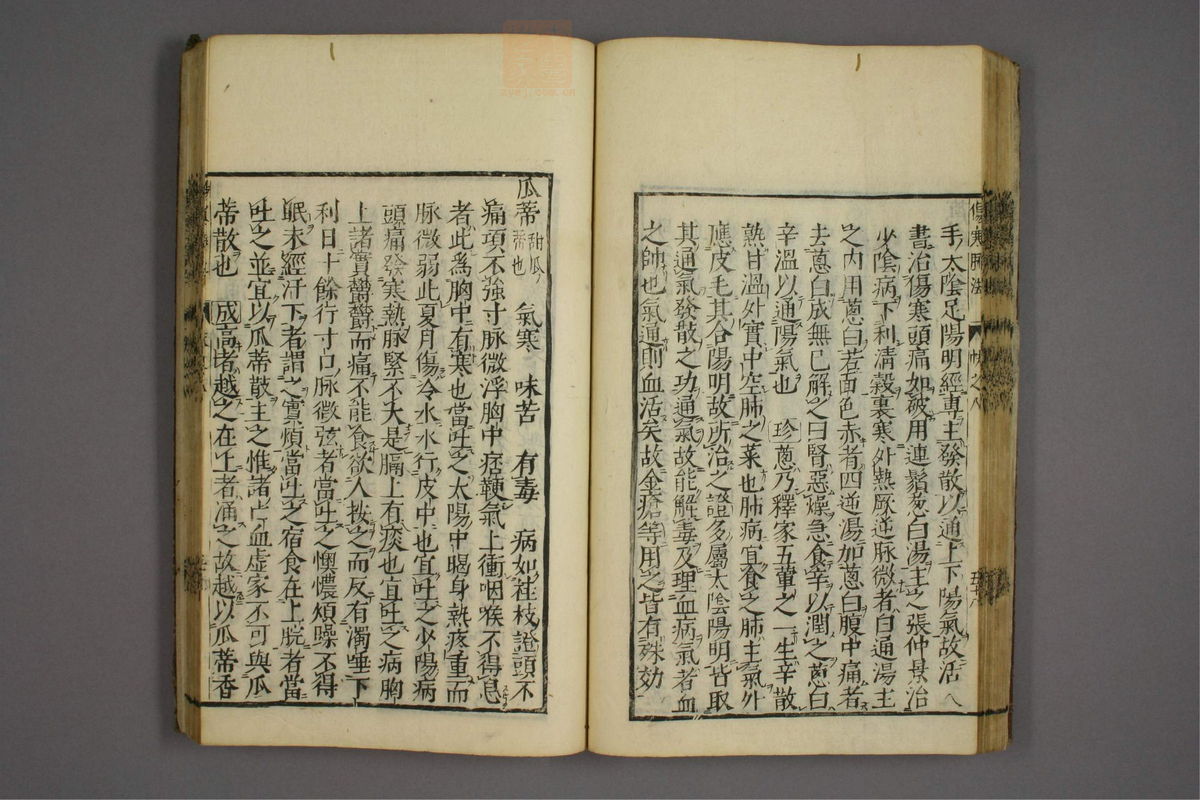 手太陰足陽明經專主發散以通上下陽氣故活人
書治傷寒頭痛如破用連鬚葱白湯主之張仲景治
少陰病下利清穀裏寒外熱厥逆脉微者白通湯主
之内用葱白若面色赤者四逆湯加葱白腹中痛者
去葱白成無已解之曰腎惡燥急食辛以潤之葱白
辛溫以通陽氣也 珍葱乃釋家五葷之一生辛散
熟甘溫外實中空肺之菜也肺病宜食之肺主氣外
應皮毛其合陽明故所治之證多屬太陰陽明皆取
其通氣發散之功通氣故能解毒及理血病氣者血
之帥也氣通則血活矣故金瘡等用之皆有殊効
瓜蒂甜瓜蒂也 氣寒 味苦 有毒 病如桂枝證頭不
痛項不強寸脉微浮胸中痞鞕氣上衝咽喉不得息
者此爲胸中有寒也當吐之太陽中暍身熱疼重而
脉微弱此夏月傷冷水水行皮中也宜吐之少陽病
頭痛發寒熱脉緊不大是膈上有痰也宜吐之病胸
上諸實鬱鬱而痛不能食欲人按之而反有濁唾下
利日十餘行寸口脉微弦者當吐之懊憹煩躁不得
眠未經汗下者謂之實煩當吐之宿食在上脘者當
吐之並宜以瓜蒂散主之惟諸亡血虛家不可與瓜
蒂散也 成高者越之在上者涌之故越以瓜蒂香